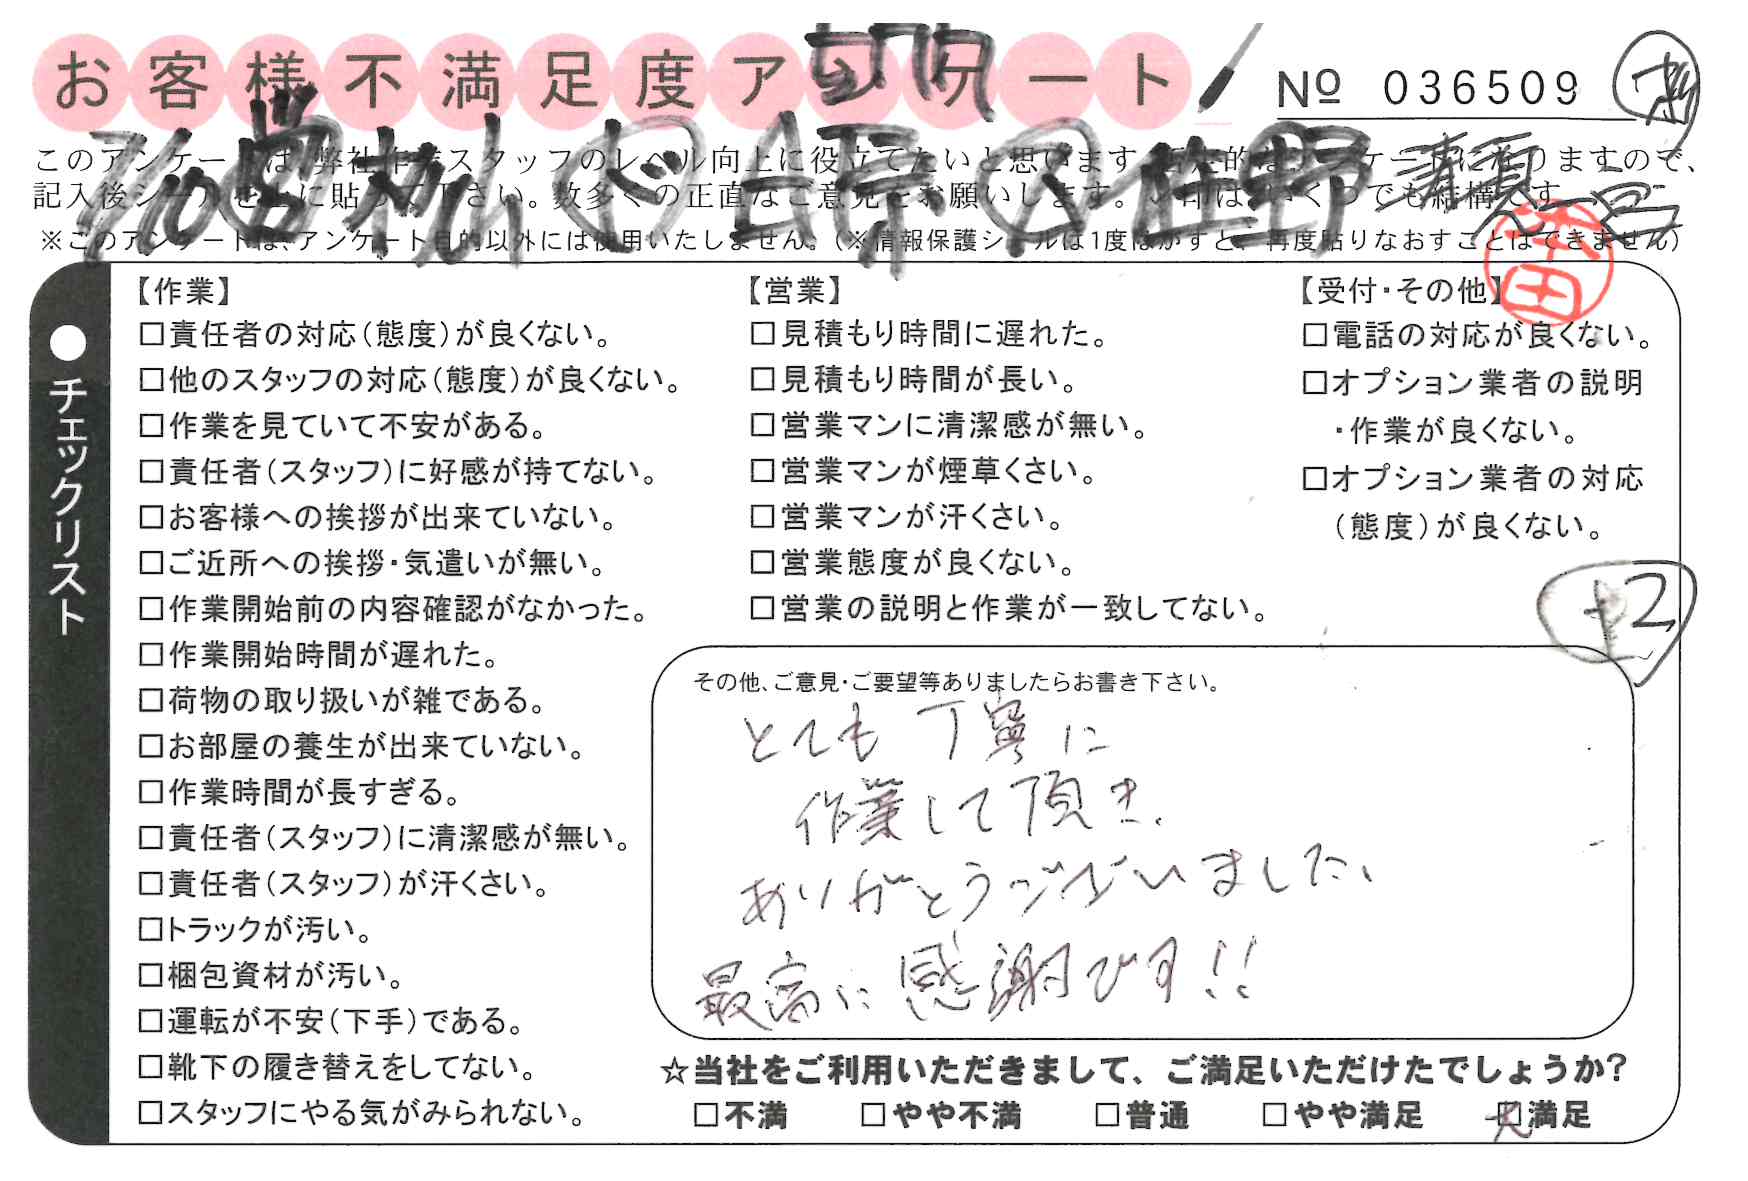 お客様不満足度アンケート
№ 036509
このアンケートは、弊社作業スタッフのレベル向上に役立てたいと思います。否定的なアンケートになりますので、
記入後シールを上に貼って下さい。数多くの正直なご意見をお願いします。✓印は、いくつでも結構です。
※このアンケートは、アンケート目的以外には使用いたしません。（※情報保護シールは1度はがすと、再度貼りなおすことはできません）
本田
●チェックリスト
【作業】
□責任者の対応（態度）が良くない。
□他のスタッフの対応（態度）が良くない。
□作業を見ていて不安がある。
□責任者（スタッフ）に好感が持てない。
□お客様への挨拶が出来ていない。
□ご近所への挨拶・気遣いが無い。
□作業開始前の内容確認がなかった。
□作業開始時間が遅れた。
□荷物の取り扱いが雑である。
□お部屋の養生が出来ていない。
□作業時間が長すぎる。
□責任者（スタッフ）に清潔感が無い。
□責任者（スタッフ）が汗くさい。
□トラックが汚い。
□梱包資材が汚い。
□運転が不安（下手）である。
□靴下の履き替えをしてない。
□スタッフにやる気がみられない。
【営業】
□見積もり時間に遅れた。
□見積もり時間が長い。
□営業マンに清潔感が無い。
□営業マンが煙草くさい。
□営業マンが汗くさい。
□営業態度が良くない。
□営業の説明と作業が一致してない。
【受付・その他】
□電話の対応が良くない。
□オプション業者の説明
・作業が良くない。
□オプション業者の対応
（態度）が良くない。
±2
その他、ご意見・ご要望等ありましたらお書き下さい。
とても丁寧に
作業して頂き、
ありがとうございました、
最高に感謝です!!
☆当社をご利用いただきまして、ご満足いただけたでしょうか?
□不満 □やや不満 □普通 □やや満足 □満足